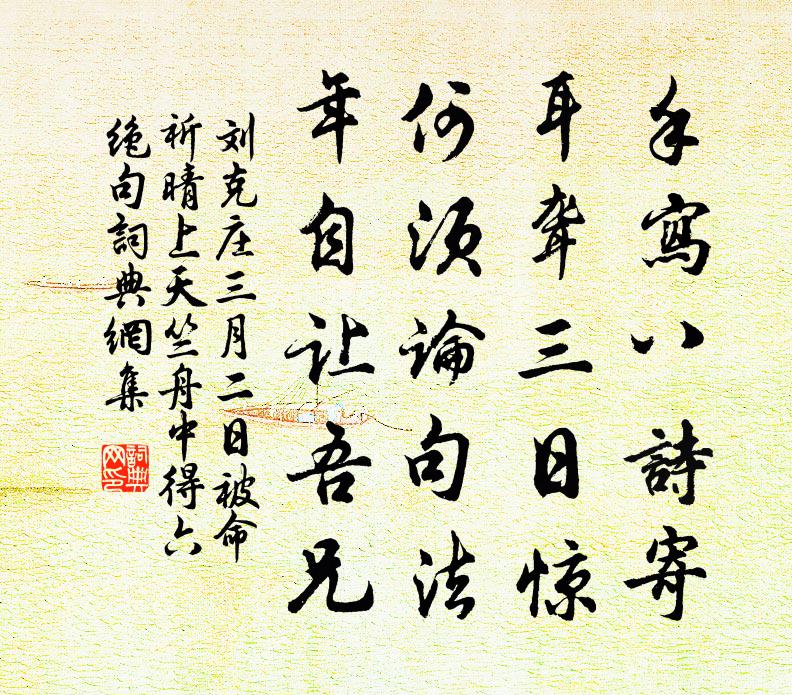 手寫八詩寄
耳聾三日惊
何須論句法
年自让吾兄
刘克庄三月二日被命
祈晴上天竺舟中得六
绝句詞典網集
詞典
网印